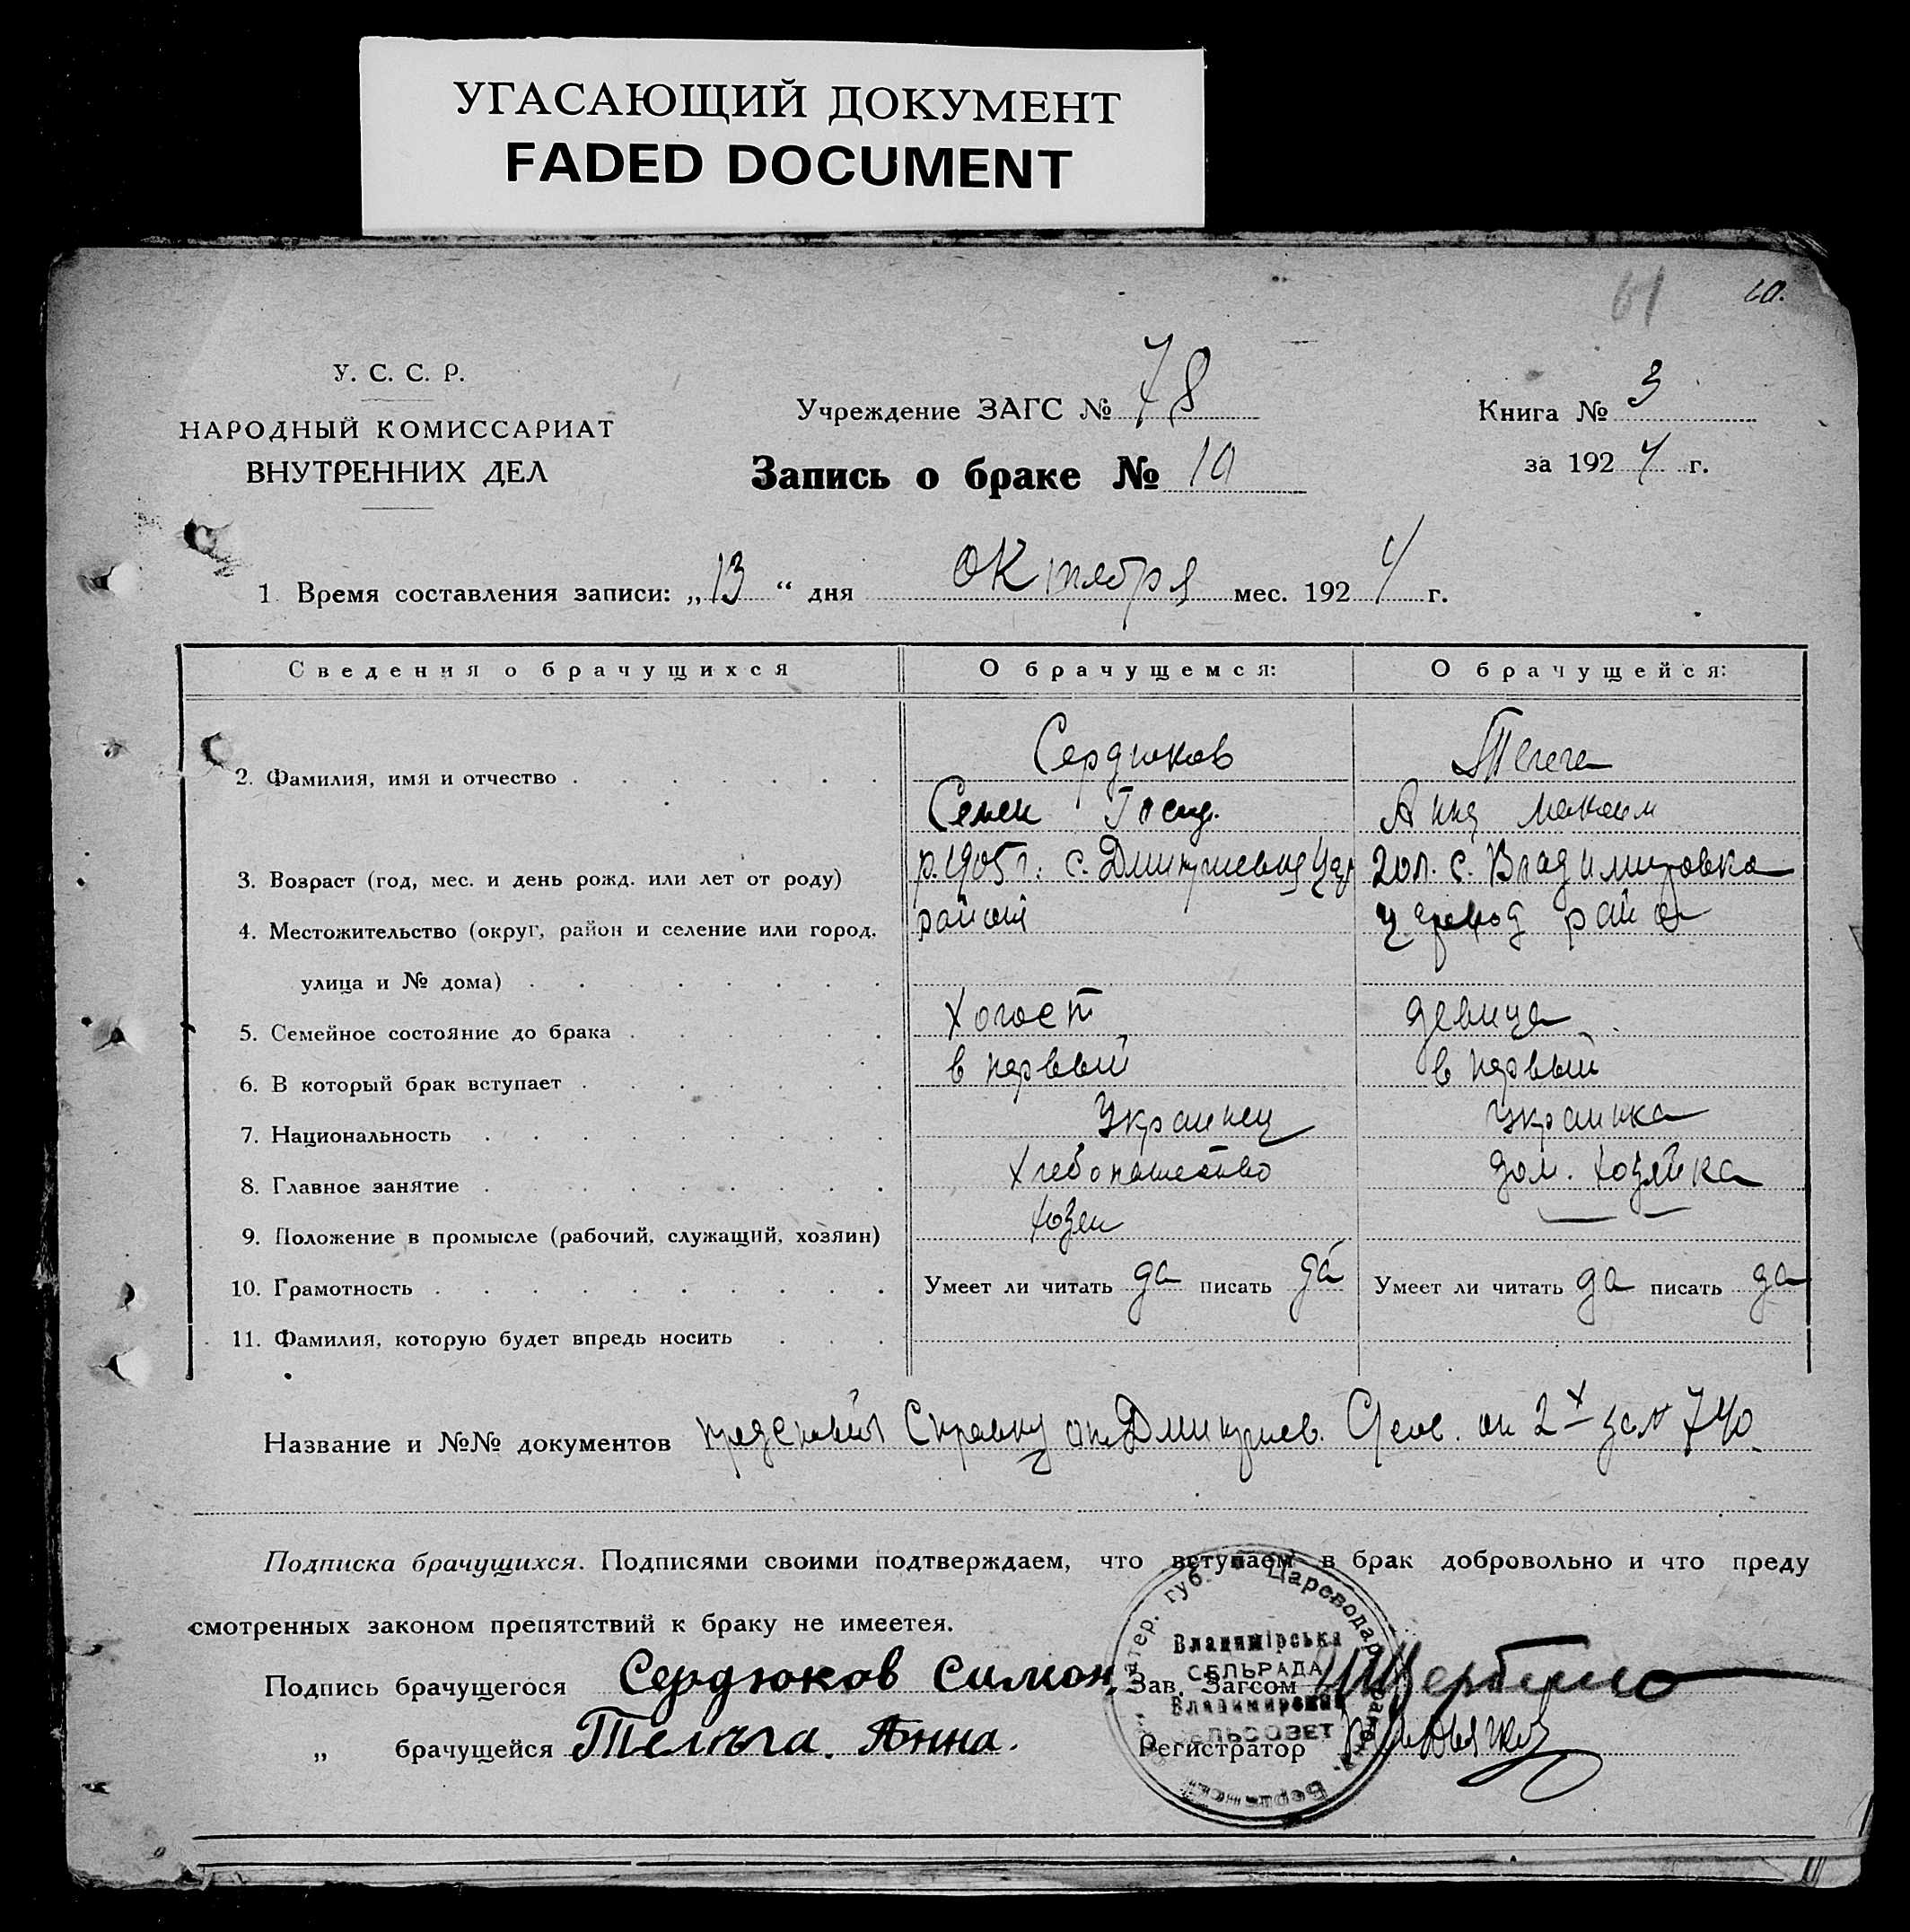 УГАСАЮЩИЙ ДОКУМЕНТ
FADED DOCUMENT
61
10.
У. С. С. Р.
НАРОДНЫЙ КОМИССАРИАТ
ВНУТРЕННИХ ДЕЛ
Учреждение ЗАГС № 78
Запись о браке № 10
Книга № 3
за 1924 г.
1 Время составления записи: „13 “ дня октября мес. 1924 г.
Сведения о брачущихся О брачущемся: О брачущейся:
2. Фамилия, имя и отчество Сердюков
Семен Анна Максим
3. Возраст (год, мес. и день рожд. или лет от роду) р. 1905 г. с. 20 л. с. Владимировка
4. Местожительство (округ, район и селение или город, район
улица и № дома)
5. Семейное состояние до брака холост девица
6. В который брак вступает в первый в первый
7. Национальность Украинец Украинка
8. Главное занятие хлебопашество дом. хозяйка
9. Положение в промысле (рабочий, служащий, хозяин) хозяин
10. Грамотность Умеет ли читать да писать да Умеет ли читать да писать да
11. Фамилия, которую будет впредь носить
Название и №№ документов Справку от Дмитриев. от 2 за № 740
Подписка брачущихся. Подписями своими подтверждаем, что вступаем в брак добровольно и что преду
смотренных законом препятствий к браку не имеетея.
Подпись брачущегося Сердюков Симон. Зав. Загсом
„ брачущейся Анна. Регистратор
Цареводар
Владимірська
СЕЛЬРАДА
Владимирский
СЕЛЬСОВЕТ